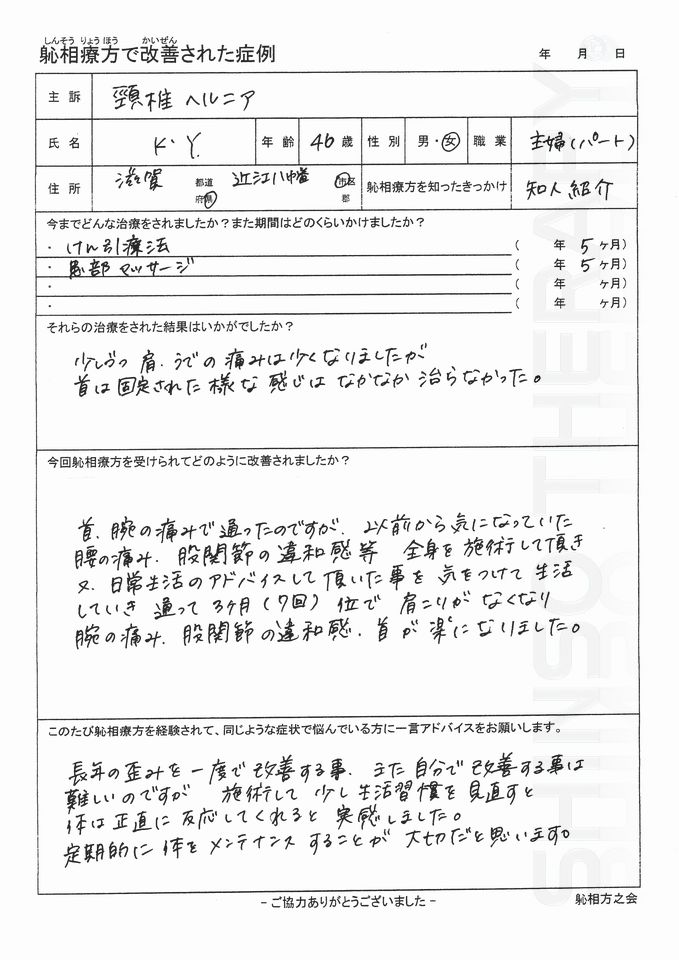 しんそう りょうほう かいぜん
躮相療方で改善された症例 年 月 日
主訴 頸椎ヘルニア
氏名 K・Y. 年齢 46歳 性別 男・女 職業 主婦(パート)
住所 滋賀 都道府県 近江八幡 市区郡 躮相療方を知ったきっかけ 知人紹介
今までどんな治療をされましたか？また期間はどのくらいかけましたか？
・けん引療法 ( 年 5ヶ月)
・患部マッサージ ( 年 5ヶ月)
・ ( 年 ヶ月)
・ ( 年 ヶ月)
それらの治療をされた結果はいかがでしたか？
少しづつ肩、うでの痛みは少くなりましたが
首は固定された様な感じはなかなか治らなかった。
今回躮相療方を受けられてどのように改善されましたか？
首、腕の痛みで通ったのですが、以前から気になっていた
腰の痛み、股関節の違和感等 全身を施術して頂き
又、日常生活のアドバイスして頂いた事を気をつけて生活
していき 通って3ヶ月(7回)位で 肩こりがなくなり
腕の痛み、股関節の違和感、首が楽になりました。
このたび躮相療方を経験されて、同じような症状で悩んでいる方に一言アドバイスをお願いします。
長年の歪みを一度で改善する事、また自分で改善する事は
難しいのですが 施術して少し生活習慣を見直すと
体は正直に反応してくれると実感しました。
定期的に体をメンテナンスすることが大切だと思います。
- ご協力ありがとうございました -
躮相方之会
SHINSO THERAPY